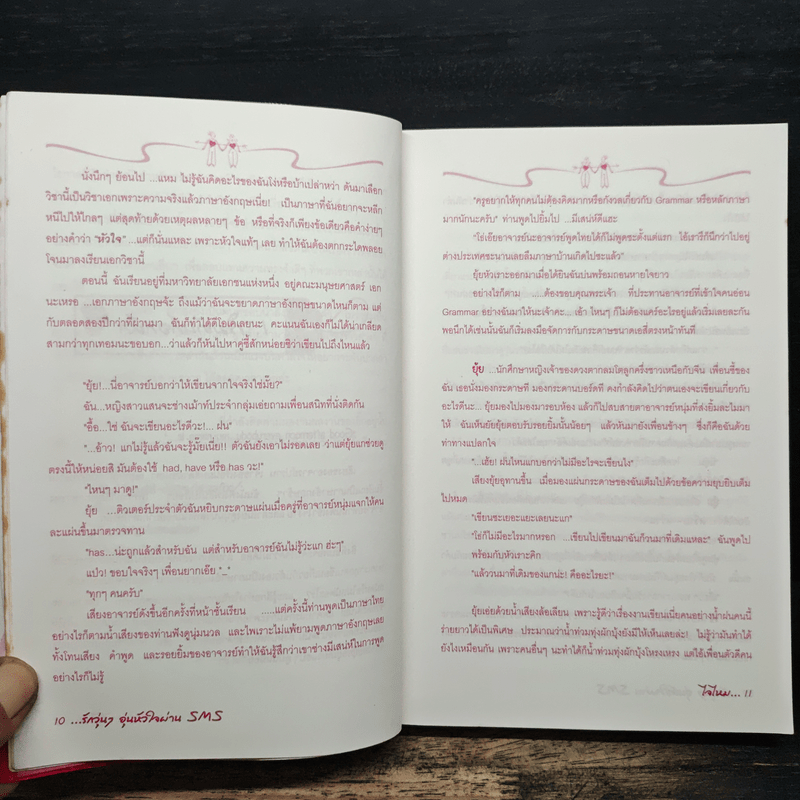 นั่งนึกๆ ย้อนไป ...แหม ไม่รู้ฉันคิดอะไรของฉันโง่หรือบ้าเปล่าหว่า ดันมาเลือก
วิชานี้เป็นวิชาเอกเพราะความจริงแล้วภาษาอังกฤษเนี่ย! เป็นภาษาที่ฉันอยากจะหลีก
หนีไปให้ไกลๆ แต่สุดท้ายด้วยเหตุผลหลายๆ ข้อ หรือที่จริงก็เพียงข้อเดียวคือคำง่ายๆ
อย่างคำว่า "หัวใจ" ...แต่ก็นั่นแหละ เพราะหัวใจแท้ๆ เลย ทำให้ฉันต้องตกกระไดพลอย
โจนมาลงเรียนเอกวิชานี้
ตอนนี้ ฉันเรียนอยู่ที่มหาวิทยาลัยเอกชนแห่งหนึ่ง อยู่คณะมนุษยศาสตร์ เอก
นะเหรอ ...เอกภาษาอังกฤษจ้ะ ถึงแม้ว่าฉันจะขยาดภาษาอังกฤษขนาดไหนก็ตาม แต่
กับตลอดสองปีกว่าที่ผ่านมา ฉันก็ทำได้ดีโอเคเลยนะ คะแนนฉันเองก็ไม่ได้น่าเกลียด
สามกว่าทุกเทอมนะขอบอก...ว่าแล้วก็หันไปหาคู่ซี้สักหน่อยซิว่าเขียนไปถึงไหนแล้ว
"ยุ้ย!...นี่อาจารย์บอกว่าให้เขียนจากใจจริงใช่มั๊ย?"
ฉัน...หญิงสาวแสนจะช่างเม้าท์ประจำกลุ่มเอ่ยถามเพื่อนสนิทที่นั่งติดกัน
"อื้อ...ใช่ ฉันจะเขียนอะไรดีวะ!... ฝน"
"...อ้าว! แกไม่รู้แล้วฉันจะรู้มั๊ยเนี่ย!! ตัวฉันยังเอาไม่รอดเลย ว่าแต่ยุ้ยแกช่วยดู
ตรงนี้ให้หน่อยสิ มันต้องใช้ had, have หรือ has วะ!"
"ไหนๆ มาดู!"
ยุ้ย ...ติวเตอร์ประจำตัวฉันหยิบกระดาษแผ่นเมื่อครู่ที่อาจารย์หนุ่มแจกให้คน
ละแผ่นขึ้นมาตรวจทาน
"has...น่ะถูกแล้วสำหรับฉัน แต่สำหรับอาจารย์ฉันไม่รู้ว่ะแก ฮ่ะๆ"
แป่ว! ขอบใจจริงๆ เพื่อนยากเอ๊ย "_"
"ทุกๆ คนครับ"
เสียงอาจารย์ดังขึ้นอีกครั้งที่หน้าชั้นเรียน .....แต่ครั้งนี้ท่านพูดเป็นภาษาไทย
อย่างไรก็ตามน้ำเสียงของท่านฟังดูนุ่มนวล และไพเราะไม่แพ้ยามพูดภาษาอังกฤษเลย
ทั้งโทนเสียง คำพูด และรอยยิ้มของอาจารย์ทำให้ฉันรู้สึกว่าเขาช่างมีเสน่ห์ในการพูด
อย่างไรก็ไม่รู้
10 ...รักวุ่นๆ อุ่นหัวใจผ่าน SMS
"ครูอยากให้ทุกคนไม่ต้องคิดมากหรือกังวลเกี่ยวกับ Grammar หรือหลักภาษา
มากนักนะครับ" ท่านพูดไปยิ้มไป ...มีเสน่ห์ดีแฮะ
"โธ่เอ๊ยอาจารย์นะอาจารย์พูดไทยได้ก็ไม่พูดซะตั้งแต่แรก ไอ้เรารึก็นึกว่าไปอยู่
ต่างประเทศซะนานเลยลืมภาษาบ้านเกิดไปซะแล้ว"
ยุ้ยหัวเราะออกมาเมื่อได้ยินฉันบ่นพร้อมถอนหายใจยาว
อย่างไรก็ตาม ....ต้องขอบคุณพระเจ้า ที่ประทานอาจารย์ที่เข้าใจคนอ่อน
Grammar อย่างฉันมาให้นะเจ้าคะ... เอ้า ไหนๆ ก็ไม่ต้องแคร์อะไรอยู่แล้วเริ่มเลยละกัน
พอนึกได้เช่นนั้นฉันก็เริ่มลงมือจัดการกับกระดาษขนาดเอสี่ตรงหน้าทันที
ยุ้ย ...นักศึกษาหญิงเจ้าของดวงตากลมโตลูกครึ่งชาวเหนือกับจีน เพื่อนซี้ของ
ฉัน เธอนั่งมองกระดาษที มองกระดานบอร์ดที คงกำลังคิดไปว่าตนเองจะเขียนเกี่ยวกับ
อะไรดีนะ... ยุ้ยมองไปมองมารอบห้อง แล้วก็ไปสบสายตาอาจารย์หนุ่มที่ส่งยิ้มละไมมา
ให้ ฉันเห็นยัยยุ้ยตอบรับรอยยิ้มนั้นน้อยๆ แล้วหันมายังเพื่อนข้างๆ ซึ่งก็คือฉันด้วย
ท่าทางแปลกใจ
"...เฮ้ย! ฝนไหนแกบอกว่าไม่มีอะไรจะเขียนไง"
เสียงยุ้ยอุทานขึ้น เมื่อมองแผ่นกระดาษของฉันเต็มไปด้วยข้อความยุบยิบเต็ม
ไปหมด
"เขียนซะเยอะแยะเลยนะแก"
"โธ่ก็ไม่มีอะไรมากหรอก ...เขียนไปเขียนมาฉันก็วนมาที่เดิมแหละ" ฉันพูดไป
พร้อมกับหัวเราะคิก
"แล้ววนมาที่เดิมของแกน่ะ! คืออะไรยะ!"
ยุ้ยเอ่ยด้วยน้ำเสียงล้อเลียน เพราะรู้ดีว่าเรื่องงานเขียนเนี่ยคนอย่างน้ำฝนคนนี้
ร่ายยาวได้เป็นพิเศษ ประมาณว่าน้ำท่วมทุ่งผักบุ้งยังมีให้เห็นเลยล่ะ! ไม่รู้ว่ามันทำได้
ยังไงเหมือนกัน เพราะคนอื่นๆ นะทำได้ก็น้ำท่วมทุ่งผักบุ้งโหรงเหรง แต่ไอ้เพื่อนตัวดีคน
ใจไหม... 11